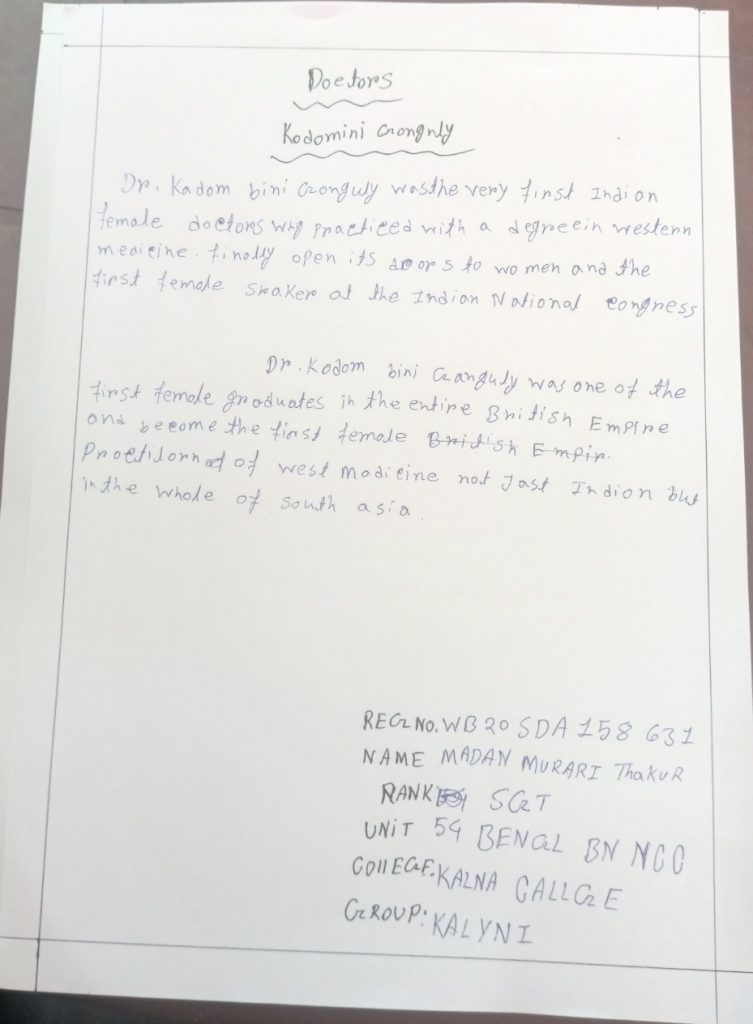 Doctors
Kodomini Gongnly
Dr. Kadom bini Gonguly wasthe very first Indion
female doctors why practiced with a degreein western
medicine. finally open its doors to women and the
first female speaker at the Indian National congress
Dr. Kodom bini Ganguly was one of the
first female graduates in the entire British Empire
and become the first female British Empir.
Practilorn of west madicine not Jast Indion but
in the whole of south asia.
REG NO. WB 20 SDA 158 631
NAME MADAN MURARI ThakuR
RANK SGT
UNiT 54 BENGL BN NCC
COllEGE. KALNA CALLGE
GROUP: KALYNI